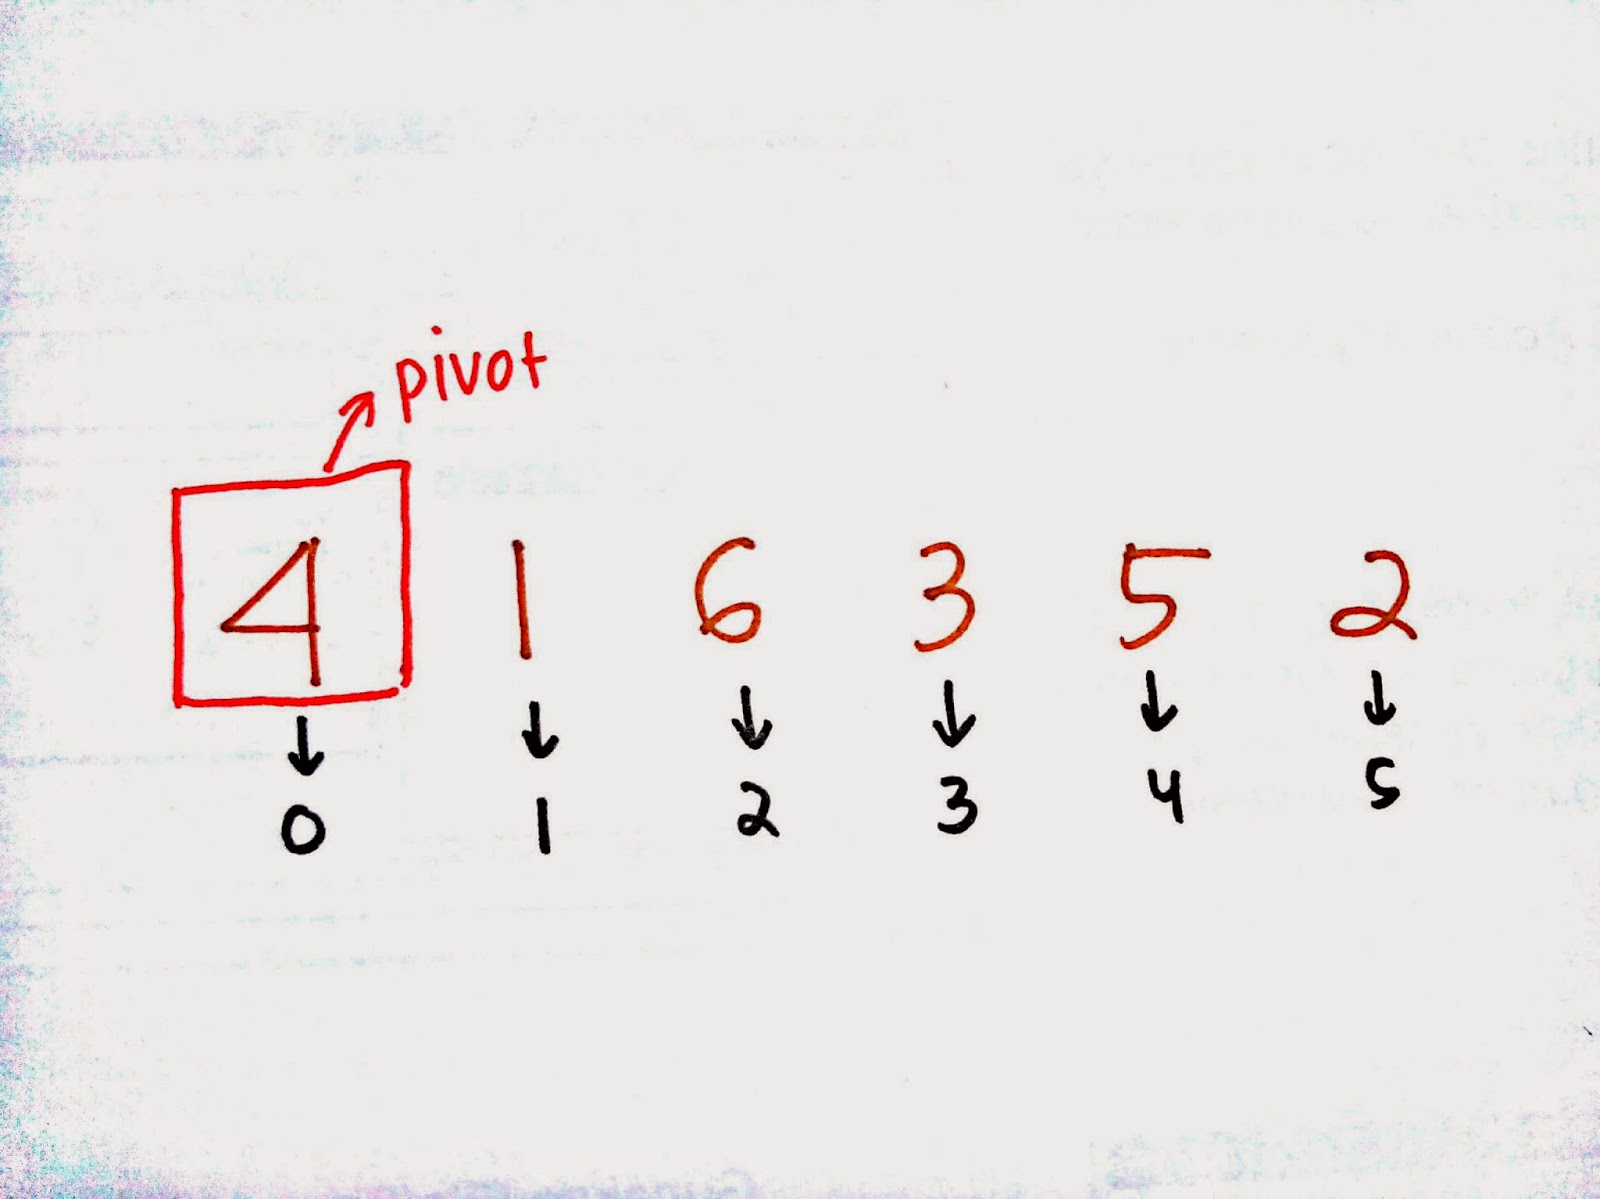 pivot
4 1 6 3 5 2
0 1 2 3 4 5